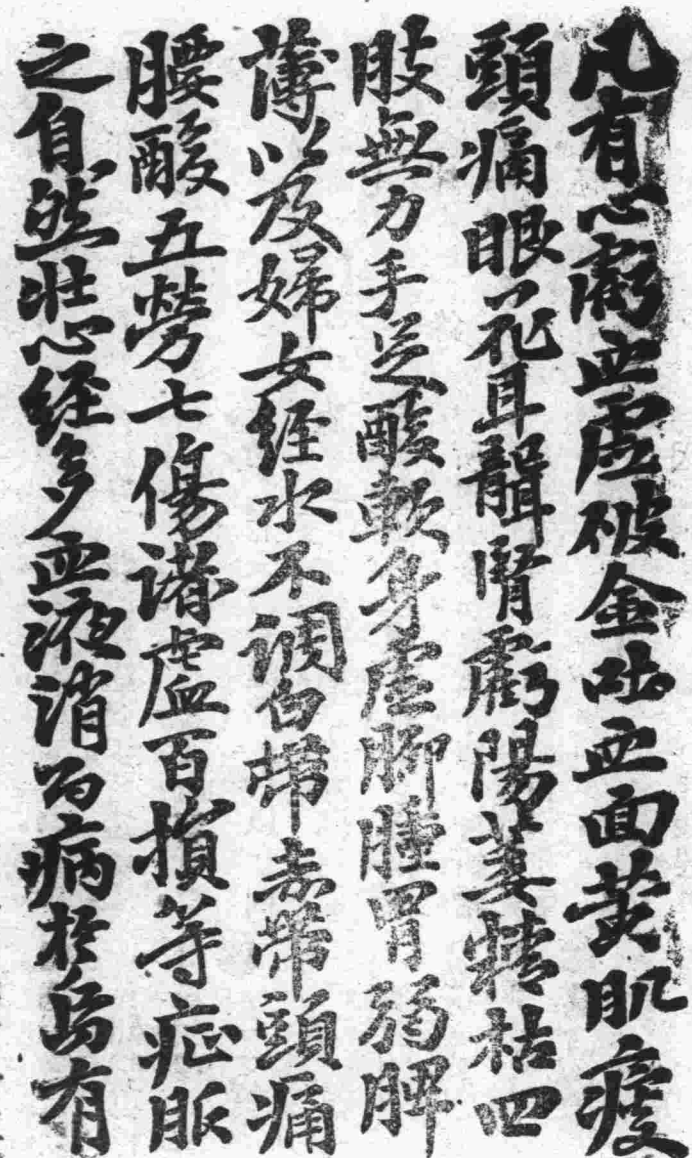 凡有心虧血虛破金吐血面黄肌瘦
頭痛眼花耳聾腎虧陽萎精枯四
肢無力手足酸軟身虛脚腫胃弱脾
薄以及婦女經水不调白帶赤帶頭痛
腰酸五勞七傷諸虛百損等症服
之自然壯心经多血液消百病於烏有